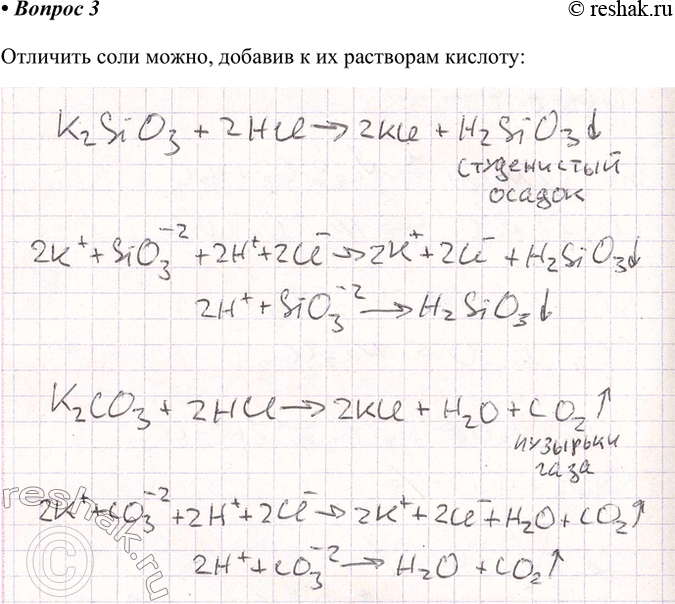 • Вопрос 3
© reshak.ru
Отличить соли можно, добавив к их растворам кислоту:
K₂SiO₃ + 2HCl → 2KCl + H₂SiO₃↓
студенистый
осадок
2K⁺ + SiO₃⁻² + 2H⁺ + 2Cl⁻ → 2K⁺ + 2Cl⁻ + H₂SiO₃↓
2H⁺ + SiO₃⁻² → H₂SiO₃↓
K₂CO₃ + 2HCl → 2KCl + H₂O + CO₂↑
пузырьки
газа
2K⁺ + CO₃⁻² + 2H⁺ + 2Cl⁻ → 2K⁺ + 2Cl⁻ + H₂O + CO₂↑
2H⁺ + CO₃⁻² → H₂O + CO₂↑
reshak.ru
©